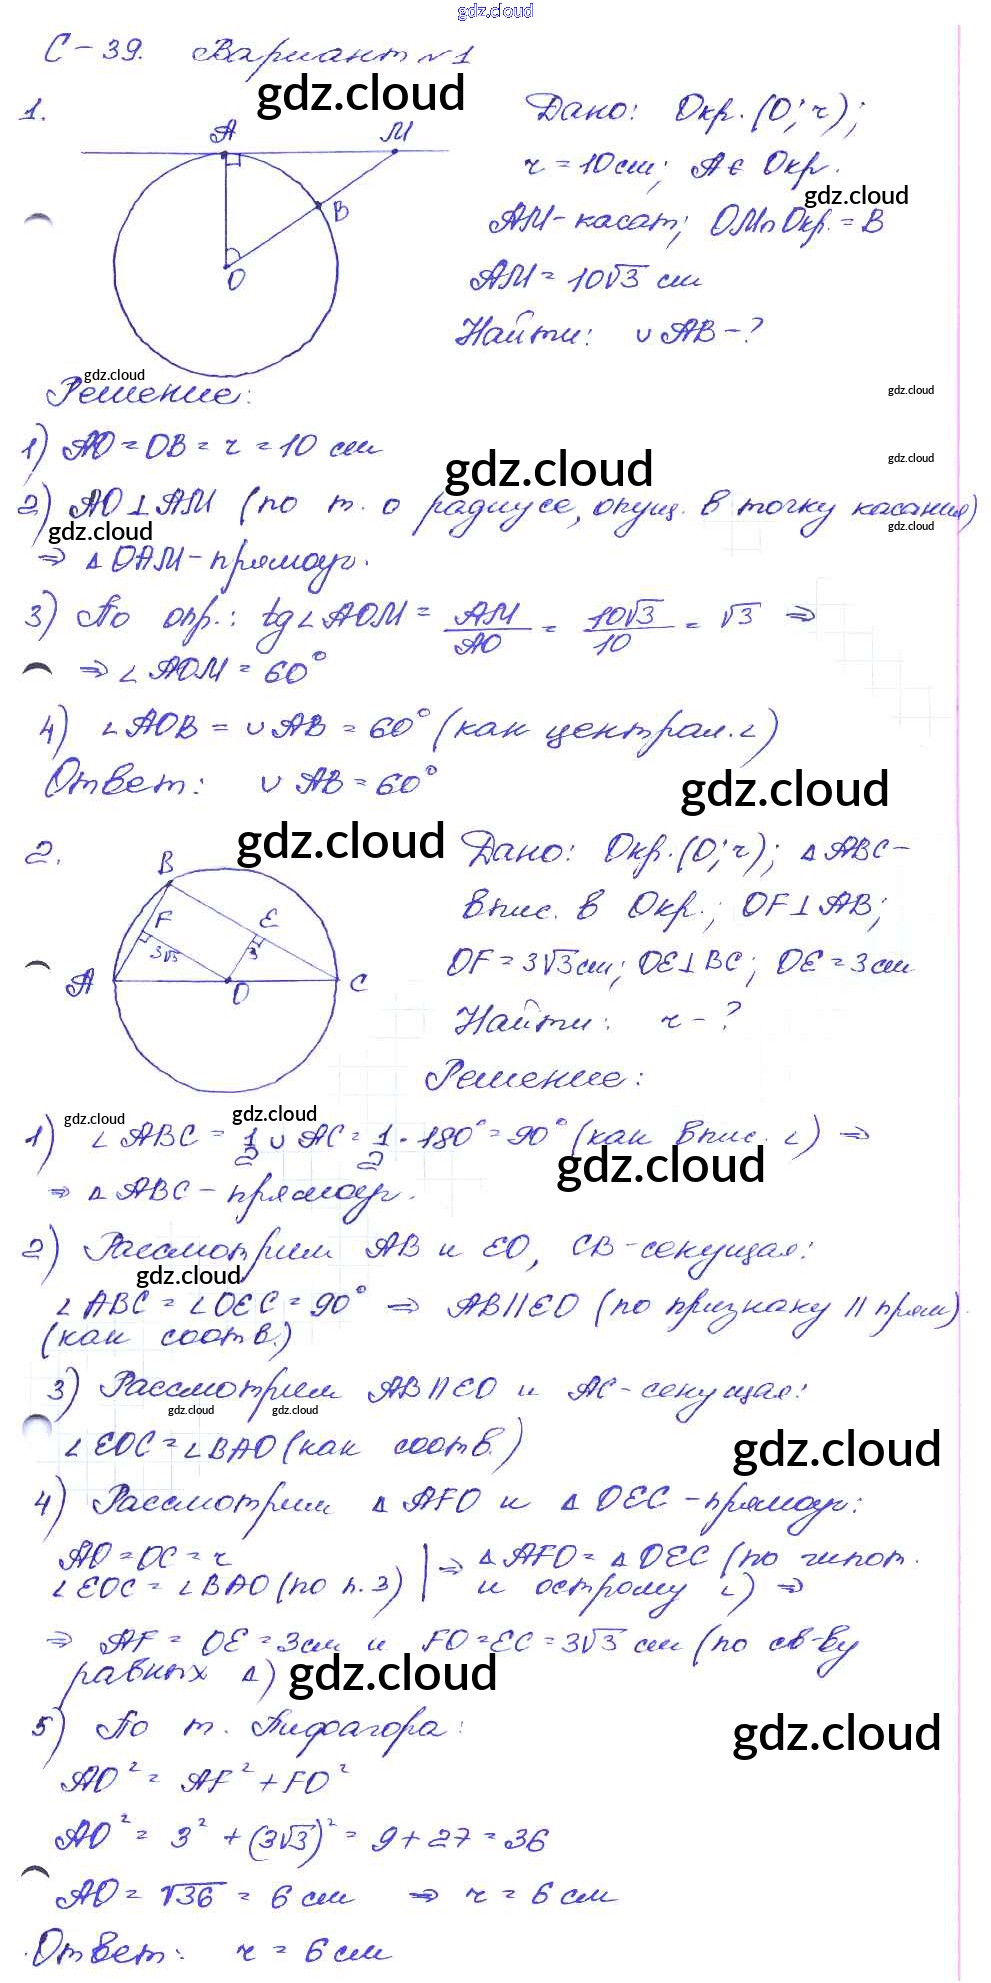 gdz.cloud
С-39. Вариант №1
gdz.cloud
1.
A
M
B
O
Дано: Окр. (O; r);
r = 10 см; A ∈ Окр.
gdz.cloud
AM - касат; OM ∩ Окр. = B
AM = 10√3 см
Найти: ∪ AB - ?
gdz.cloud
gdz.cloud
Решение:
1) AO = OB = r = 10 см
gdz.cloud
gdz.cloud
2) AO ⊥ AM (по т. о радиусе, опущ. в точку касания)
gdz.cloud
gdz.cloud
⇒ △ OAM - прямоуг.
3) По опр.: tg∠AOM = AM/AO = 10√3/10 = √3 ⇒
⇒ ∠AOM = 60°
4) ∠AOB = ∪ AB = 60° (как централ. ∠)
Ответ: ∪ AB = 60°
gdz.cloud
gdz.cloud
2.
B
F
E
3√3
3
A
O
C
Дано: Окр. (O; r); △ ABC -
впис. в Окр.; OF ⊥ AB;
OF = 3√3 см; OE ⊥ BC; OE = 3 см
Найти: r - ?
Решение:
gdz.cloud
gdz.cloud
1) ∠ABC = 1/2 ∪ AC = 1/2 · 180° = 90° (как впис. ∠) ⇒
gdz.cloud
⇒ △ ABC - прямоуг.
2) Рассмотрим AB и EO, CB - секущая:
gdz.cloud
∠ABC = ∠OEC = 90° ⇒ AB || EO (по признаку || прям).
(как соотв.)
3) Рассмотрим AB || EO и AC - секущая:
gdz.cloud
gdz.cloud
∠EOC = ∠BAO (как соотв.)
gdz.cloud
4) Рассмотрим △ AFO и △ OEC - прямоуг:
AO = OC = r
∠EOC = ∠BAO (по п. 3) | ⇒ △ AFO = △ OEC (по гипот.
и острому ∠) ⇒
⇒ AF = OE = 3 см и FO = EC = 3√3 см (по св-ву
равных △)
gdz.cloud
5) По т. Пифагора:
gdz.cloud
AO² = AF² + FO²
AO² = 3² + (3√3)² = 9 + 27 = 36
AO = √36 = 6 см ⇒ r = 6 см
Ответ: r = 6 см